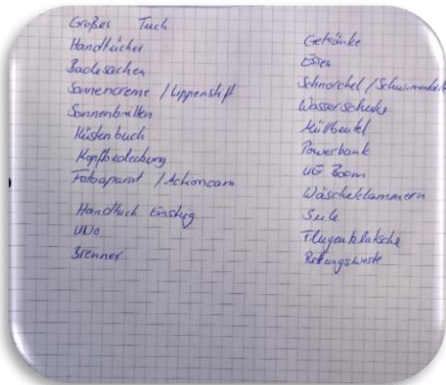 Großes Tuch
Handtücher
Badesachen
Sonnencreme / Lippenstift
Sonnenbrillen
Küstenbuch
Kopfbedeckung
Fotoaparat / Actioncam
Handtuch Einstieg
UNO
Brenner
Getränke
Essen
Schnorchel /
Wasserschuhe
Müllbeutel
Powerbank
UE Boom
Wäscheklammern
Seile
Fliegenklatsche
Rettungsweste